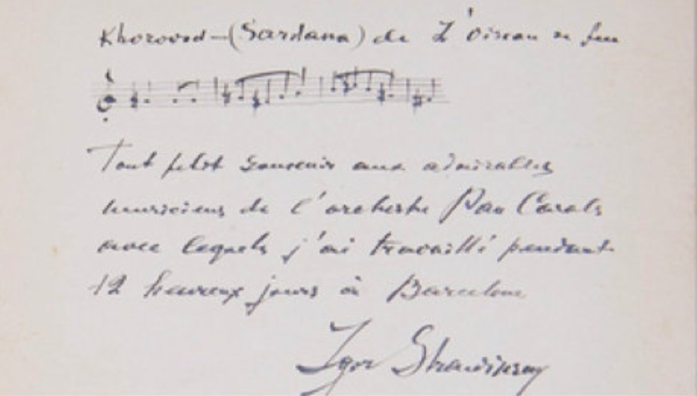 Khorovod — (Sardana) de L'oiseau de feu
Tout petit souvenir aux admirables
musiciens de l'orchestre Pau Casals
avec lesquels j'ai travaillé pendant
12 heureux jours à Barcelone
Igor Strawinsky